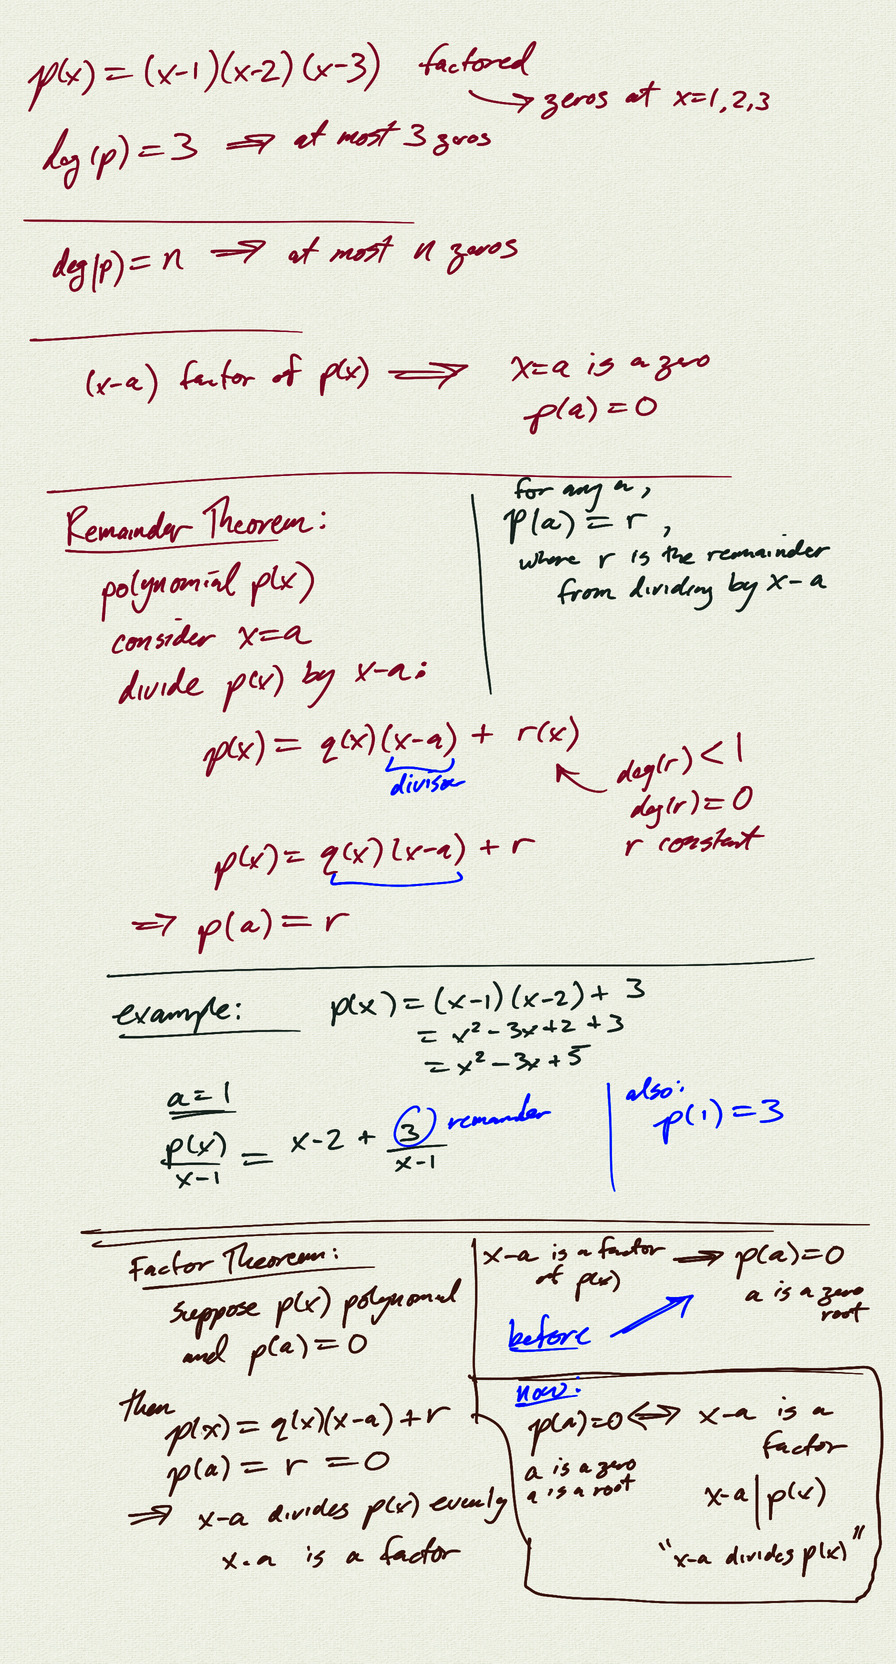 p(x) = (x-1)(x-2)(x-3) factored
→ zeros at x=1,2,3
deg(p) = 3 ⟹ at most 3 zeros
deg(p) = n ⟹ at most n zeros
(x-a) factor of p(x) ⟹ x=a is a zero
p(a) = 0
Remainder Theorem:
polynomial p(x)
consider x=a
divide p(x) by x-a:
for any a,
p(a) = r,
where r is the remainder
from dividing by x-a
p(x) = q(x)(x-a) + r(x)
divisor
deg(r) < 1
deg(r) = 0
r constant
p(x) = q(x)(x-a) + r
⟹ p(a) = r
example: p(x) = (x-1)(x-2) + 3
= x² - 3x + 2 + 3
= x² - 3x + 5
a = 1
p(x)/(x-1) = x-2 + 3/(x-1) remainder
also:
p(1) = 3
Factor Theorem:
suppose p(x) polynomial
and p(a) = 0
then
p(x) = q(x)(x-a) + r
p(a) = r = 0
⟹ x-a divides p(x) evenly
x-a is a factor
x-a is a factor ⟹ p(a)=0
of p(x)
a is a zero
root
before
now:
p(a)=0 ⟺ x-a is a
factor
a is a zero
a is a root
x-a | p(x)
"x-a divides p(x)"